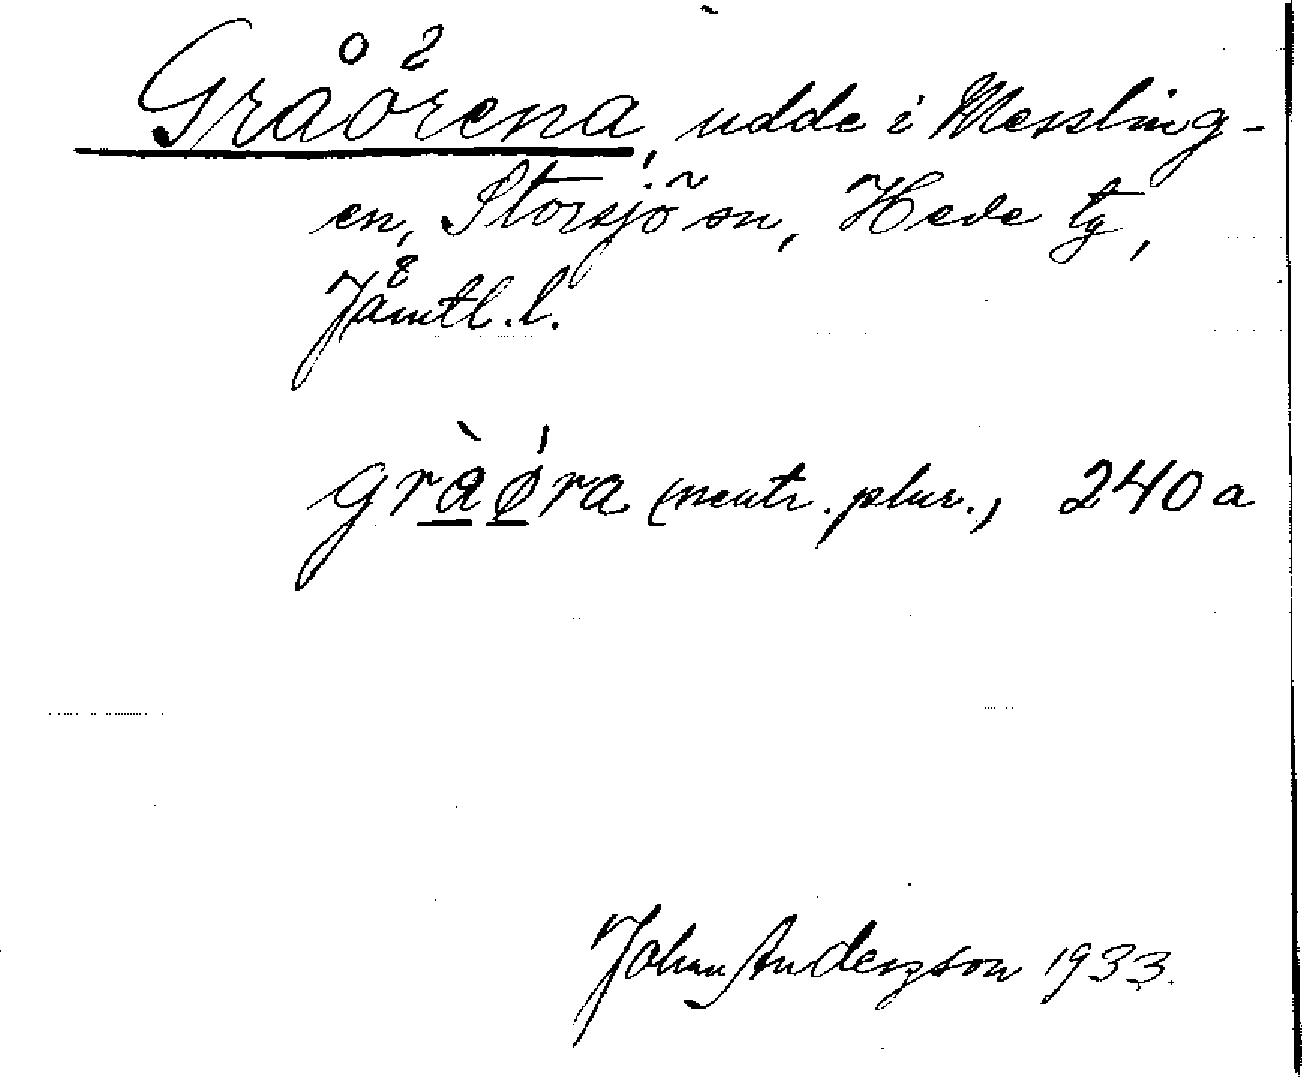 Gråörena, udde i Messling-
en, Storsjö sn, Hede tg,
Jämtl. l.
gràǿra (neutr. plur.) 240 a
Johan Anderzson 1933.